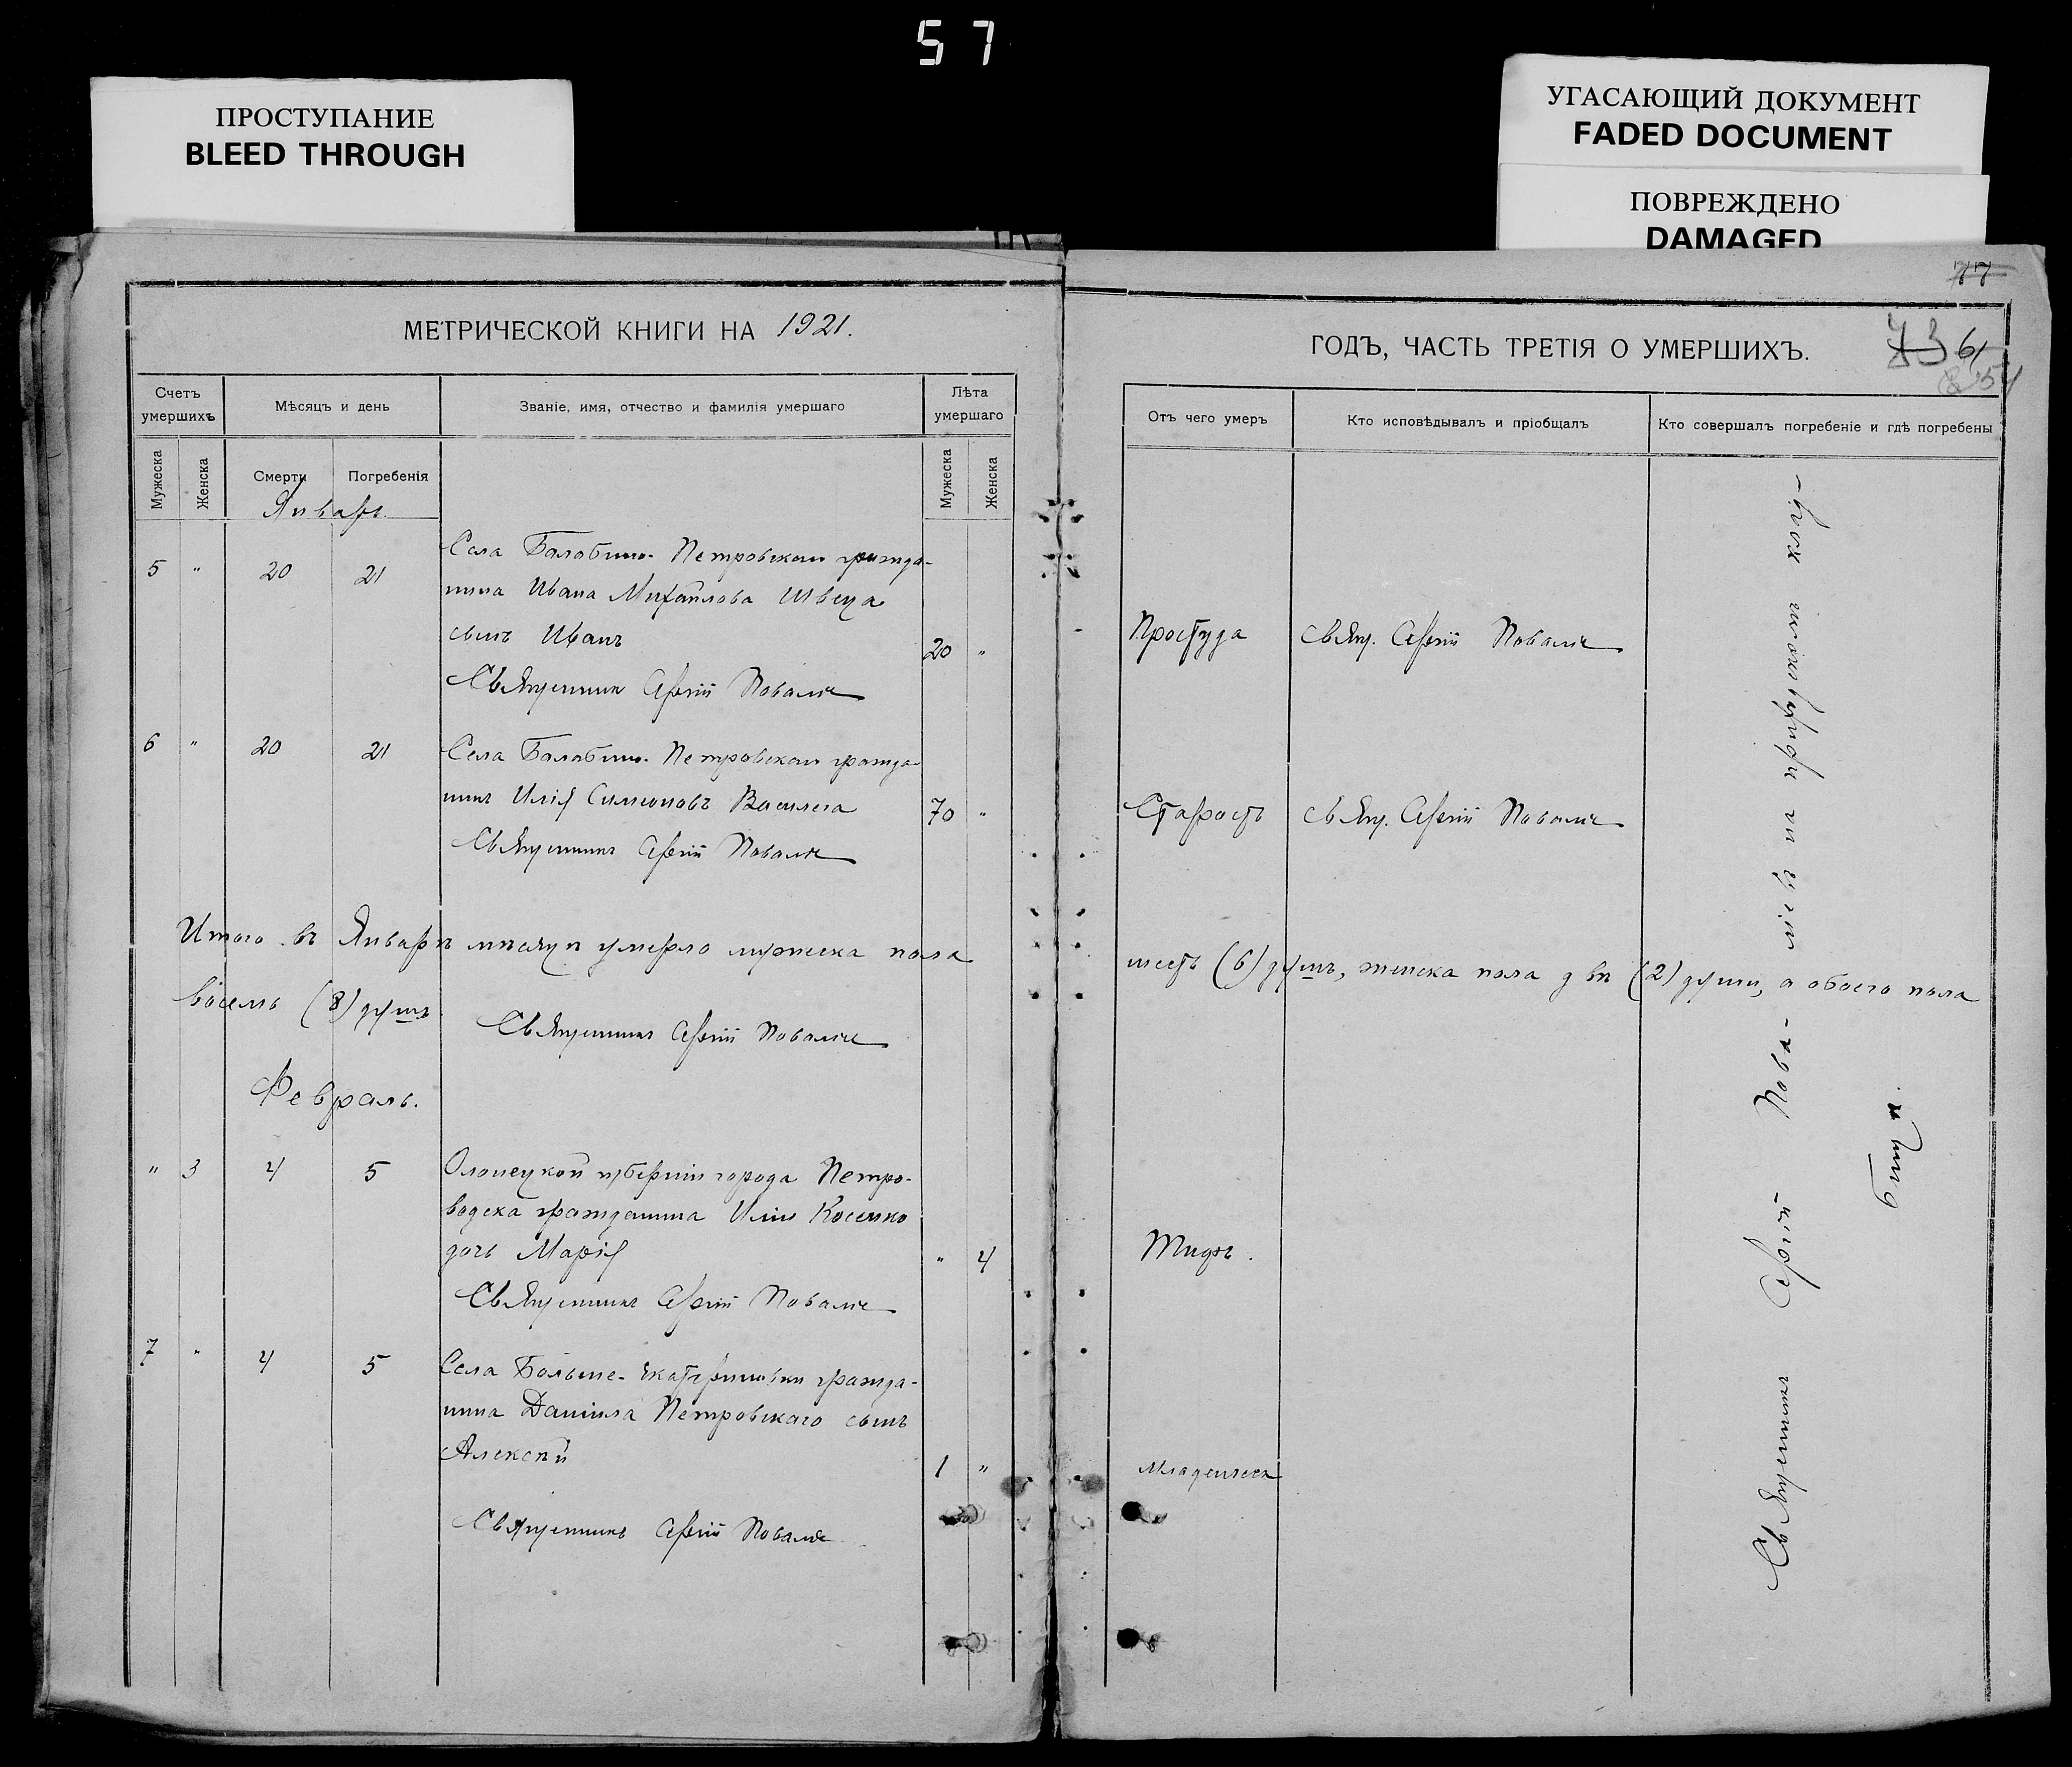 57
ПРОСТУПАНИЕ
BLEED THROUGH
УГАСАЮЩИЙ ДОКУМЕНТ
FADED DOCUMENT
ПОВРЕЖДЕНО
DAMAGED
МЕТРИЧЕСКОЙ КНИГИ НА 1921.
Счетъ умершихъ
Мѣсяцъ и день
Званіе, имя, отчество и фамилія умершаго
Лѣта умершаго
Мужеска
Женска
Смерти
Погребенія
Мужеска
Женска
Январь.
5 " 20 21
Села Балабино-Петровскаго гражда-
нина Ивана Михайлова Швеца
сынъ Иванъ
20 "
Священникъ Сергій
6 " 20 21
Села Балабино-Петровскаго гражда-
нинъ Илія Симоновъ
70 "
Священникъ Сергій
Итого въ Январѣ мѣсяцѣ умерло мужеска пола
восемь (8) душъ
Священникъ Сергій
Февраль.
" 3 4 5
Олонецкой губерніи города Петро-
водска гражданина Иліи Косенко
дочь Марія
" 4
Священникъ Сергій
7 " 4 5
Села Больше-Екатериновки гражда-
нина Даніила Петровскаго сынъ
Алексѣй
1 "
Священникъ Сергій
77
ГОДЪ, ЧАСТЬ ТРЕТІЯ О УМЕРШИХЪ.
73 61
Отъ чего умеръ
Кто исповѣдывалъ и пріобщалъ
Кто совершалъ погребеніе и гдѣ погребены
Простуда
Свящ. Сергій
Старость
Свящ. Сергій
шесть (6) душъ, женска пола двѣ (2) души, а обоего пола
Тифъ.
Младенческ
Священникъ Сергій
на приходскомъ клад-
бищѣ.